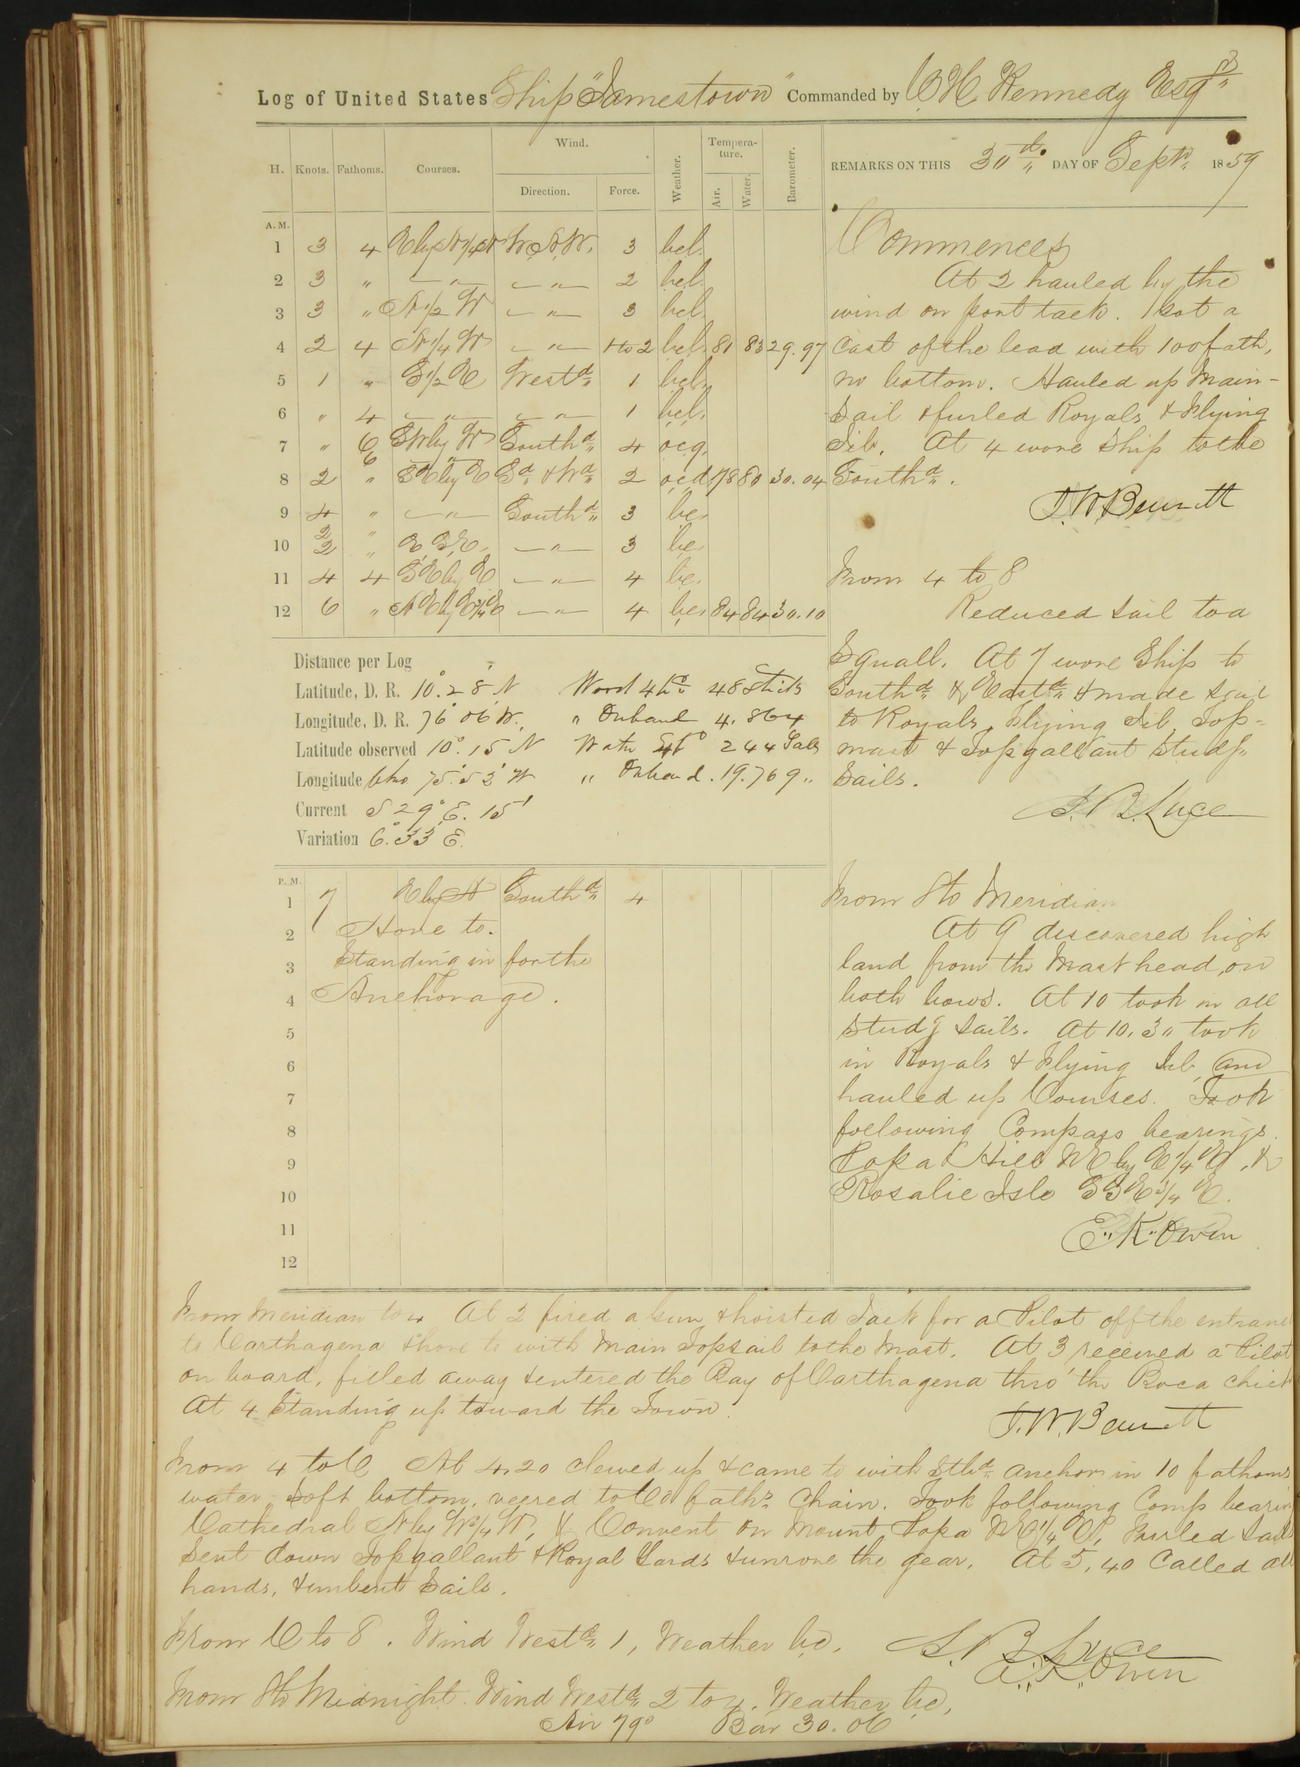 Log of United States Ship "Jamestown" Commanded by C H Kennedy Esqr
H. Knots. Fathoms. Courses. Wind. Direction. Force. Weather. Temperature. Air. Water. Barometer.
REMARKS ON THIS 30th DAY OF Sept 1859
A.M.
1 3 4 W.N.W. 3 bcl.
2 3 " — " — — " — 2 bcl.
3 3 " N 1/2 W — " — 3 bcl.
4 2 4 N 1/4 W — " — 1 to 2 bcl. 81 83 29.97
5 1 " S 1/2 E Westd 1 bcl.
6 " 4 — " — — " — 1 bcl.
7 " 6 SW by W Southd 4 ocq.
8 2 " SE by E Sd & Wd 2 ocd 78 80 30.04
9 4 " — " — Southd 3 bc.
10 2 " E.S.E. — " — 3 bc.
11 4 4 SE by E — " — 4 bc.
12 6 " — " — 4 bc. 84 84 30.10
Commences
At 2 hauled by the
wind on port tack. Got a
cast of the lead with 100 fath,
no bottom. Hauled up Main-
Sail & furled Royals, & Flying
Jib. At 4 wore ship to the
Southd.
J. W. Bennett
From 4 to 8
Reduced sail to a
Squall. At 7 wore Ship to
Southd & Eastd & made sail
to Royals, Flying Jib, Top-
mast & Topgallant Studg
Sails.
S. B. Luce
Distance per Log
Latitude, D. R. 10° 28 N Wood 48 Sticks
Longitude, D. R. 76° 06' W. " Onhand 4.864
Latitude observed 10° 15 N Water 244 Galls
Longitude Chro 75° 53' W " Onhand. 19.769 "
Current S 29° E. 15'
Variation 6° 33' E.
P.M.
1 7 E by N Southd 4
2 Hove to.
3 Standing in for the
4 Anchorage.
5
6
7
8
9
10
11
12
From 8 to Meridian
At 9 discovered high
land from the Mast head, on
both bows. At 10 took in all
Studg Sails. At 10.30 took
in Royals & Flying Jib, and
hauled up Courses. Took
following Compass bearings.
Popa Hill NE by E 1/4 E, &
Rosalie Isle SSE 3/4 E.
E. K. Owen
From Meridian to 4 At 2 fired a Gun & hoisted Jack for a Pilot off the entrance
to Carthagena & hove to with Main Topsail to the Mast. At 3 received a Pilot
on board, filled away & entered the Bay of Carthagena thro' the Boca Chica
At 4 Standing up toward the Town.
J. W. Bennett
From 4 to 6 At 4.20 clewed up & came to with Stbd Anchor in 10 fathoms
water, Soft bottom, veered to 60 faths Chain. Took following Comp bearings
Cathedral N by W 3/4 W, & Convent on Mount Popa Furled Sails
Sent down Topgallant & Royal Yards & unrove the gear. At 5.40 Called all
hands, & unbent Sails.
S. B. Luce
From 6 to 8. Wind Westd 1, Weather bc.
E. K. Owen
From 8 to Midnight. Wind Westd 2 to 4. Weather bc,
Air 79° Bar 30.06